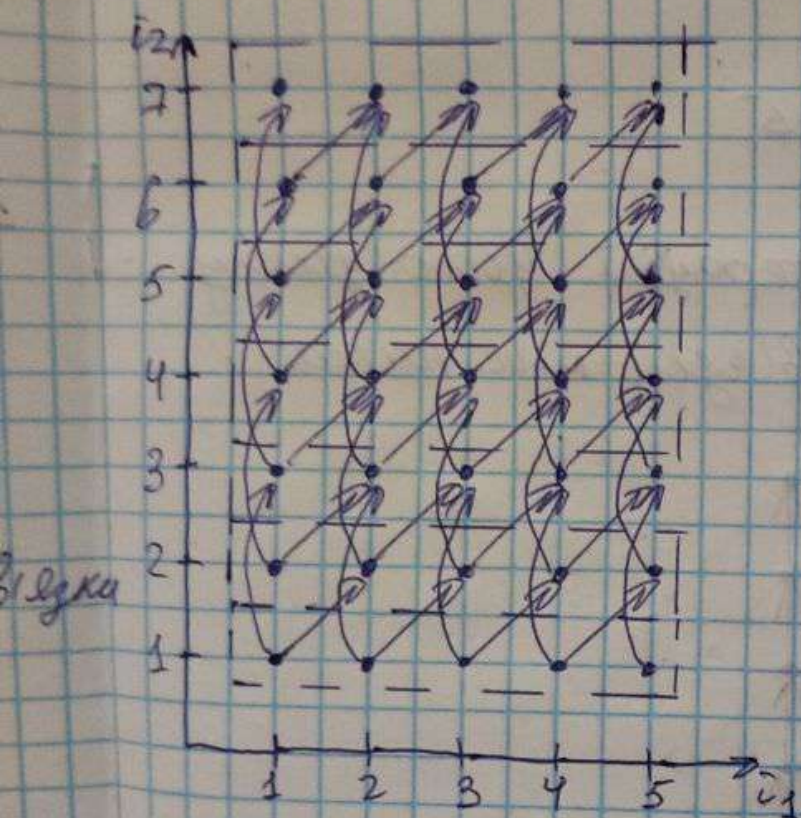 i2
7
6
5
4
3
2
1
1 2 3 4 5 i1